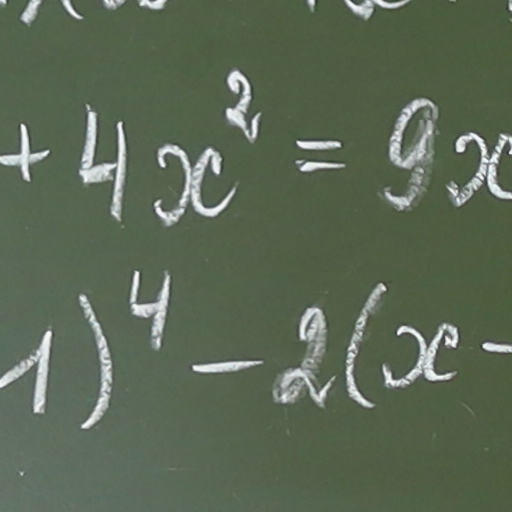 + 4x² = 9x
1)⁴ - 2(x -